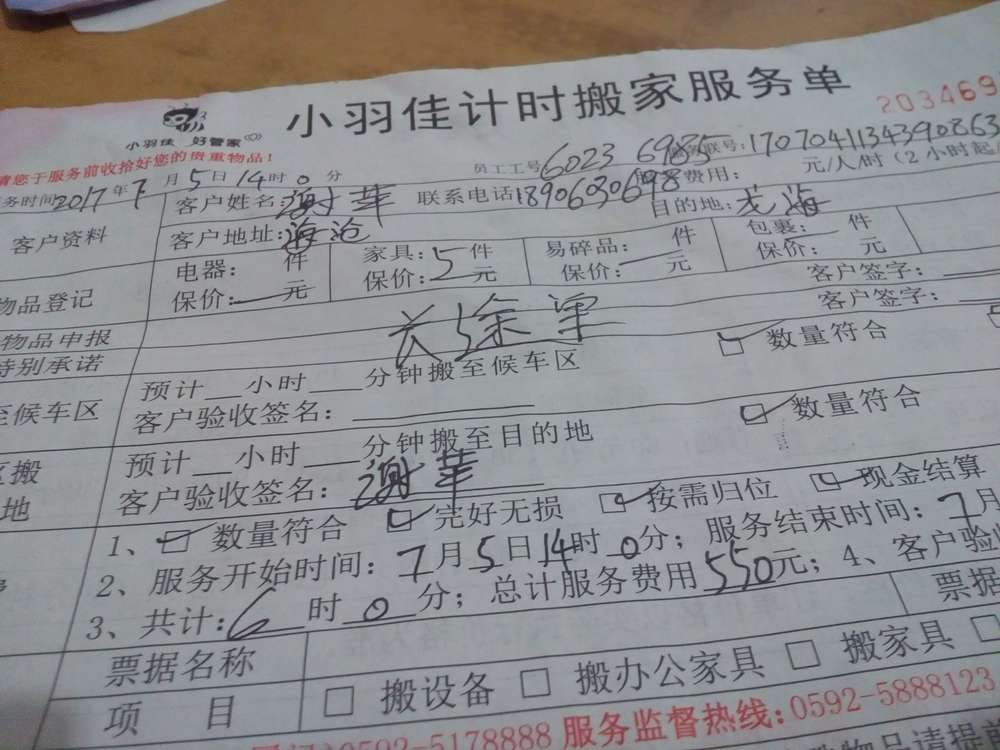 小羽佳计时搬家服务单
小羽佳 好管家
203469
请您于服务前收拾好您的贵重物品!
员工工号6023 6985 联号:17070411343908​63
务时间2017年7月5日14时0分 客户姓名:谢華 联系电话18906030698 费用: 元/人/时(2小时起
客户资料 客户地址:海沧 目的地:龙海
物品登记 电器: 件 家具:5件 易碎品: 件 包裹: 件
保价: 元 保价: 元 保价: 元 保价: 元
物品申报 客户签字:
特别承诺 客户签字:
至候车区 预计 小时 分钟搬至候车区 数量符合
客户验收签名:
搬 预计 小时 分钟搬至目的地 数量符合
地 客户验收签名:谢華
1、 数量符合 完好无损 按需归位 现金结算
2、服务开始时间:7月5日14时0分;服务结束时间:7月
3、共计:6时0分;总计服务费用550元;4、客户验
票据名称 票据
项 目 搬设备 搬办公家具 搬家具
0592-5178888 服务监督热线:0592-5888123
物品请提前